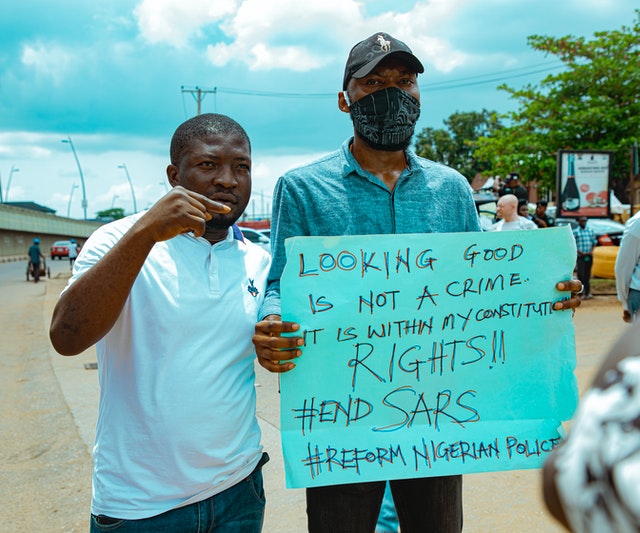 LOOKING GOOD
IS NOT A CRIME..
IT IS WITHIN MY CONSTITUTIO
RIGHTS!!
#END SARS
#REFORM NIGERIAN POLICE